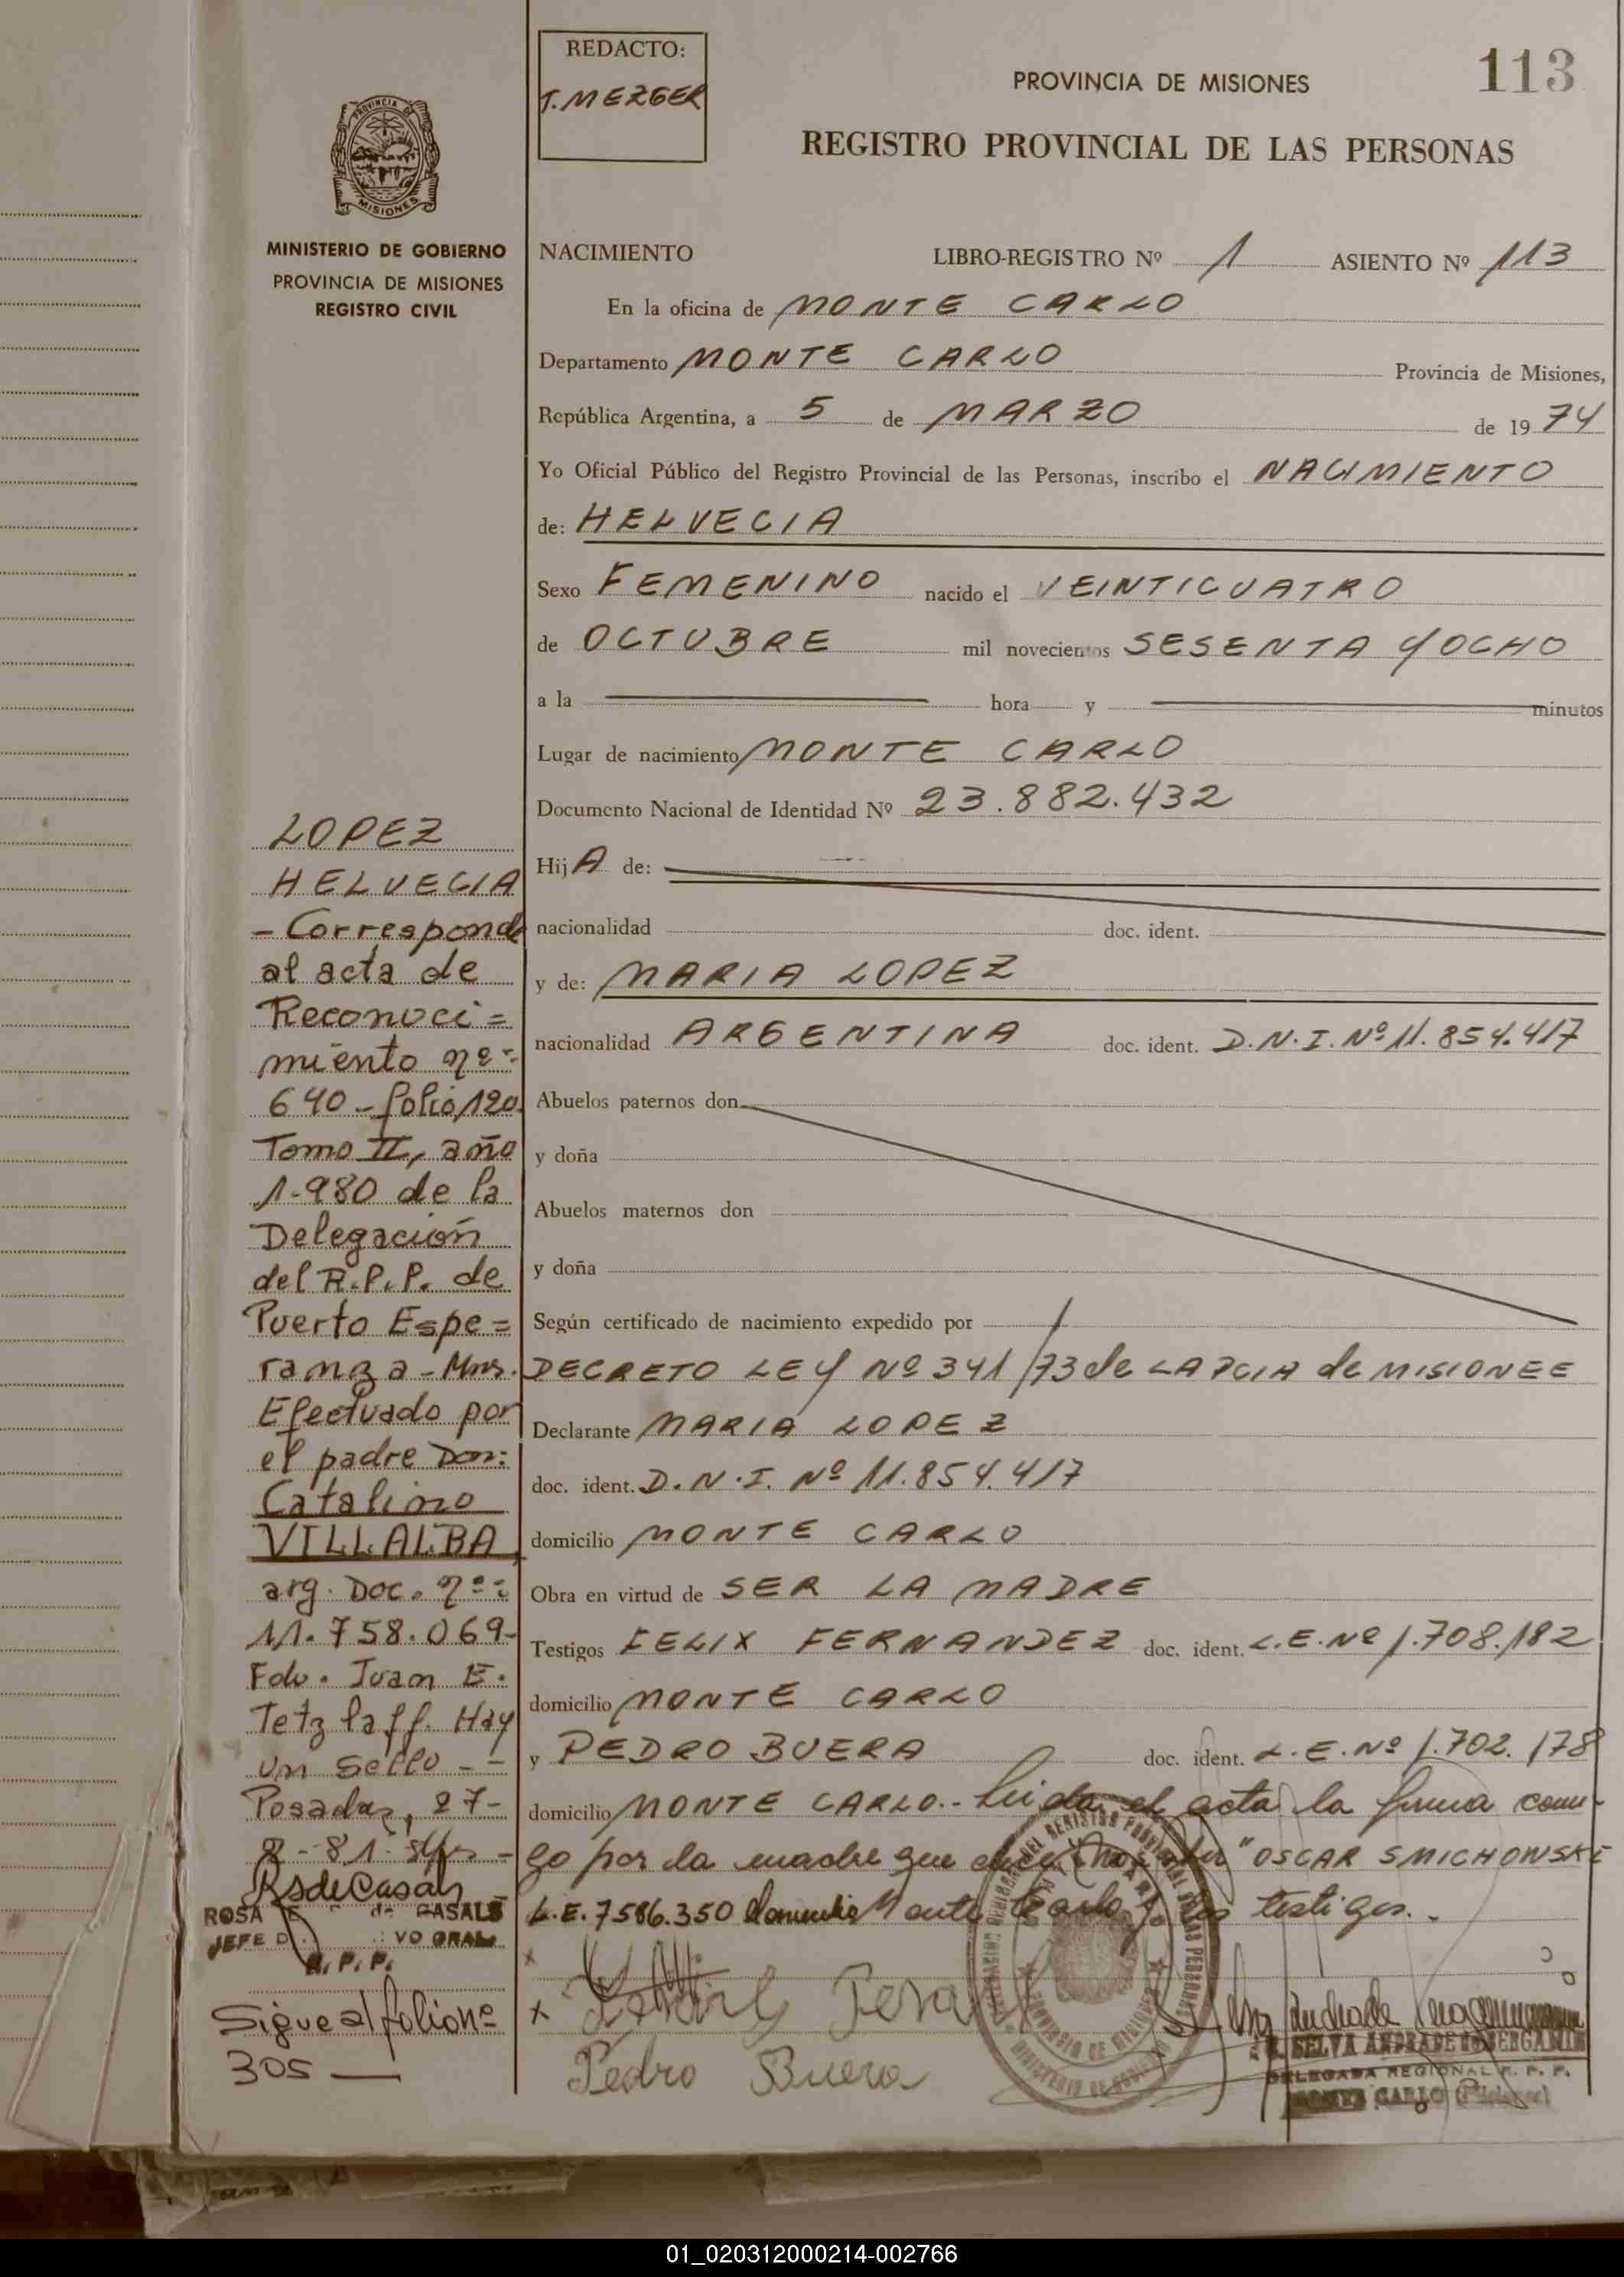 REDACTO:
T. MEZGER
PROVINCIA DE MISIONES
113
REGISTRO PROVINCIAL DE LAS PERSONAS
PROVINCIA DE
MISIONES
MINISTERIO DE GOBIERNO
PROVINCIA DE MISIONES
REGISTRO CIVIL
NACIMIENTO LIBRO-REGISTRO Nº 1 ASIENTO Nº 113
En la oficina de MONTE CARLO
Departamento MONTE CARLO Provincia de Misiones,
República Argentina, a 5 de MARZO de 1974
Yo Oficial Público del Registro Provincial de las Personas, inscribo el NACIMIENTO
de: HELVECIA
Sexo FEMENINO nacido el VEINTICUATRO
de OCTUBRE mil novecientos SESENTA Y OCHO
a la hora y minutos
Lugar de nacimiento MONTE CARLO
Documento Nacional de Identidad Nº 23.882.432
HijA de:
nacionalidad doc. ident.
y de: MARIA LOPEZ
nacionalidad ARGENTINA doc. ident. D.N.I. Nº 11.854.417
Abuelos paternos don
y doña
Abuelos maternos don
y doña
Según certificado de nacimiento expedido por
DECRETO LEY Nº 341/73 de LA PCIA de MISIONEE
Declarante MARIA LOPEZ
doc. ident. D.N.I. Nº 11.854.417
domicilio MONTE CARLO
Obra en virtud de SER LA MADRE
Testigos FELIX FERNANDEZ doc. ident. L.E. Nº 1.708.182
domicilio MONTE CARLO
y PEDRO BUERA doc. ident. L.E. Nº 1.702.178
domicilio MONTE CARLO.- Leida el acta la firma conmi-
go por la madre que dice no saber "OSCAR SMICHOWSKI
L.E. 7586.350 domicilio Monte Carlo y los testigos.-
Pedro Buera
SELVA ANDRADE de BERGAMIN
DELEGADA REGIONAL R. P. P.
MONTE CARLO (Misiones)
LOPEZ
HELVECIA
- Corresponde
al acta de
Reconoci=
miento nº:
640 - folio 120
Tomo II, año
1.980 de la
Delegación
del R.P.P. de
Puerto Espe=
ranza - Mns.
Efectuado por
el padre Don:
Catalino
VILLALBA
arg. Doc. nº:
11.758.069-
Fdo. Juan E.
Tetzlaff. Hay
un sello -
Posadas, 27-
8-81-
ROSA de CASALS
JEFE
R. P. P.
Sigue al folio nº
305 —
01_020312000214-002766